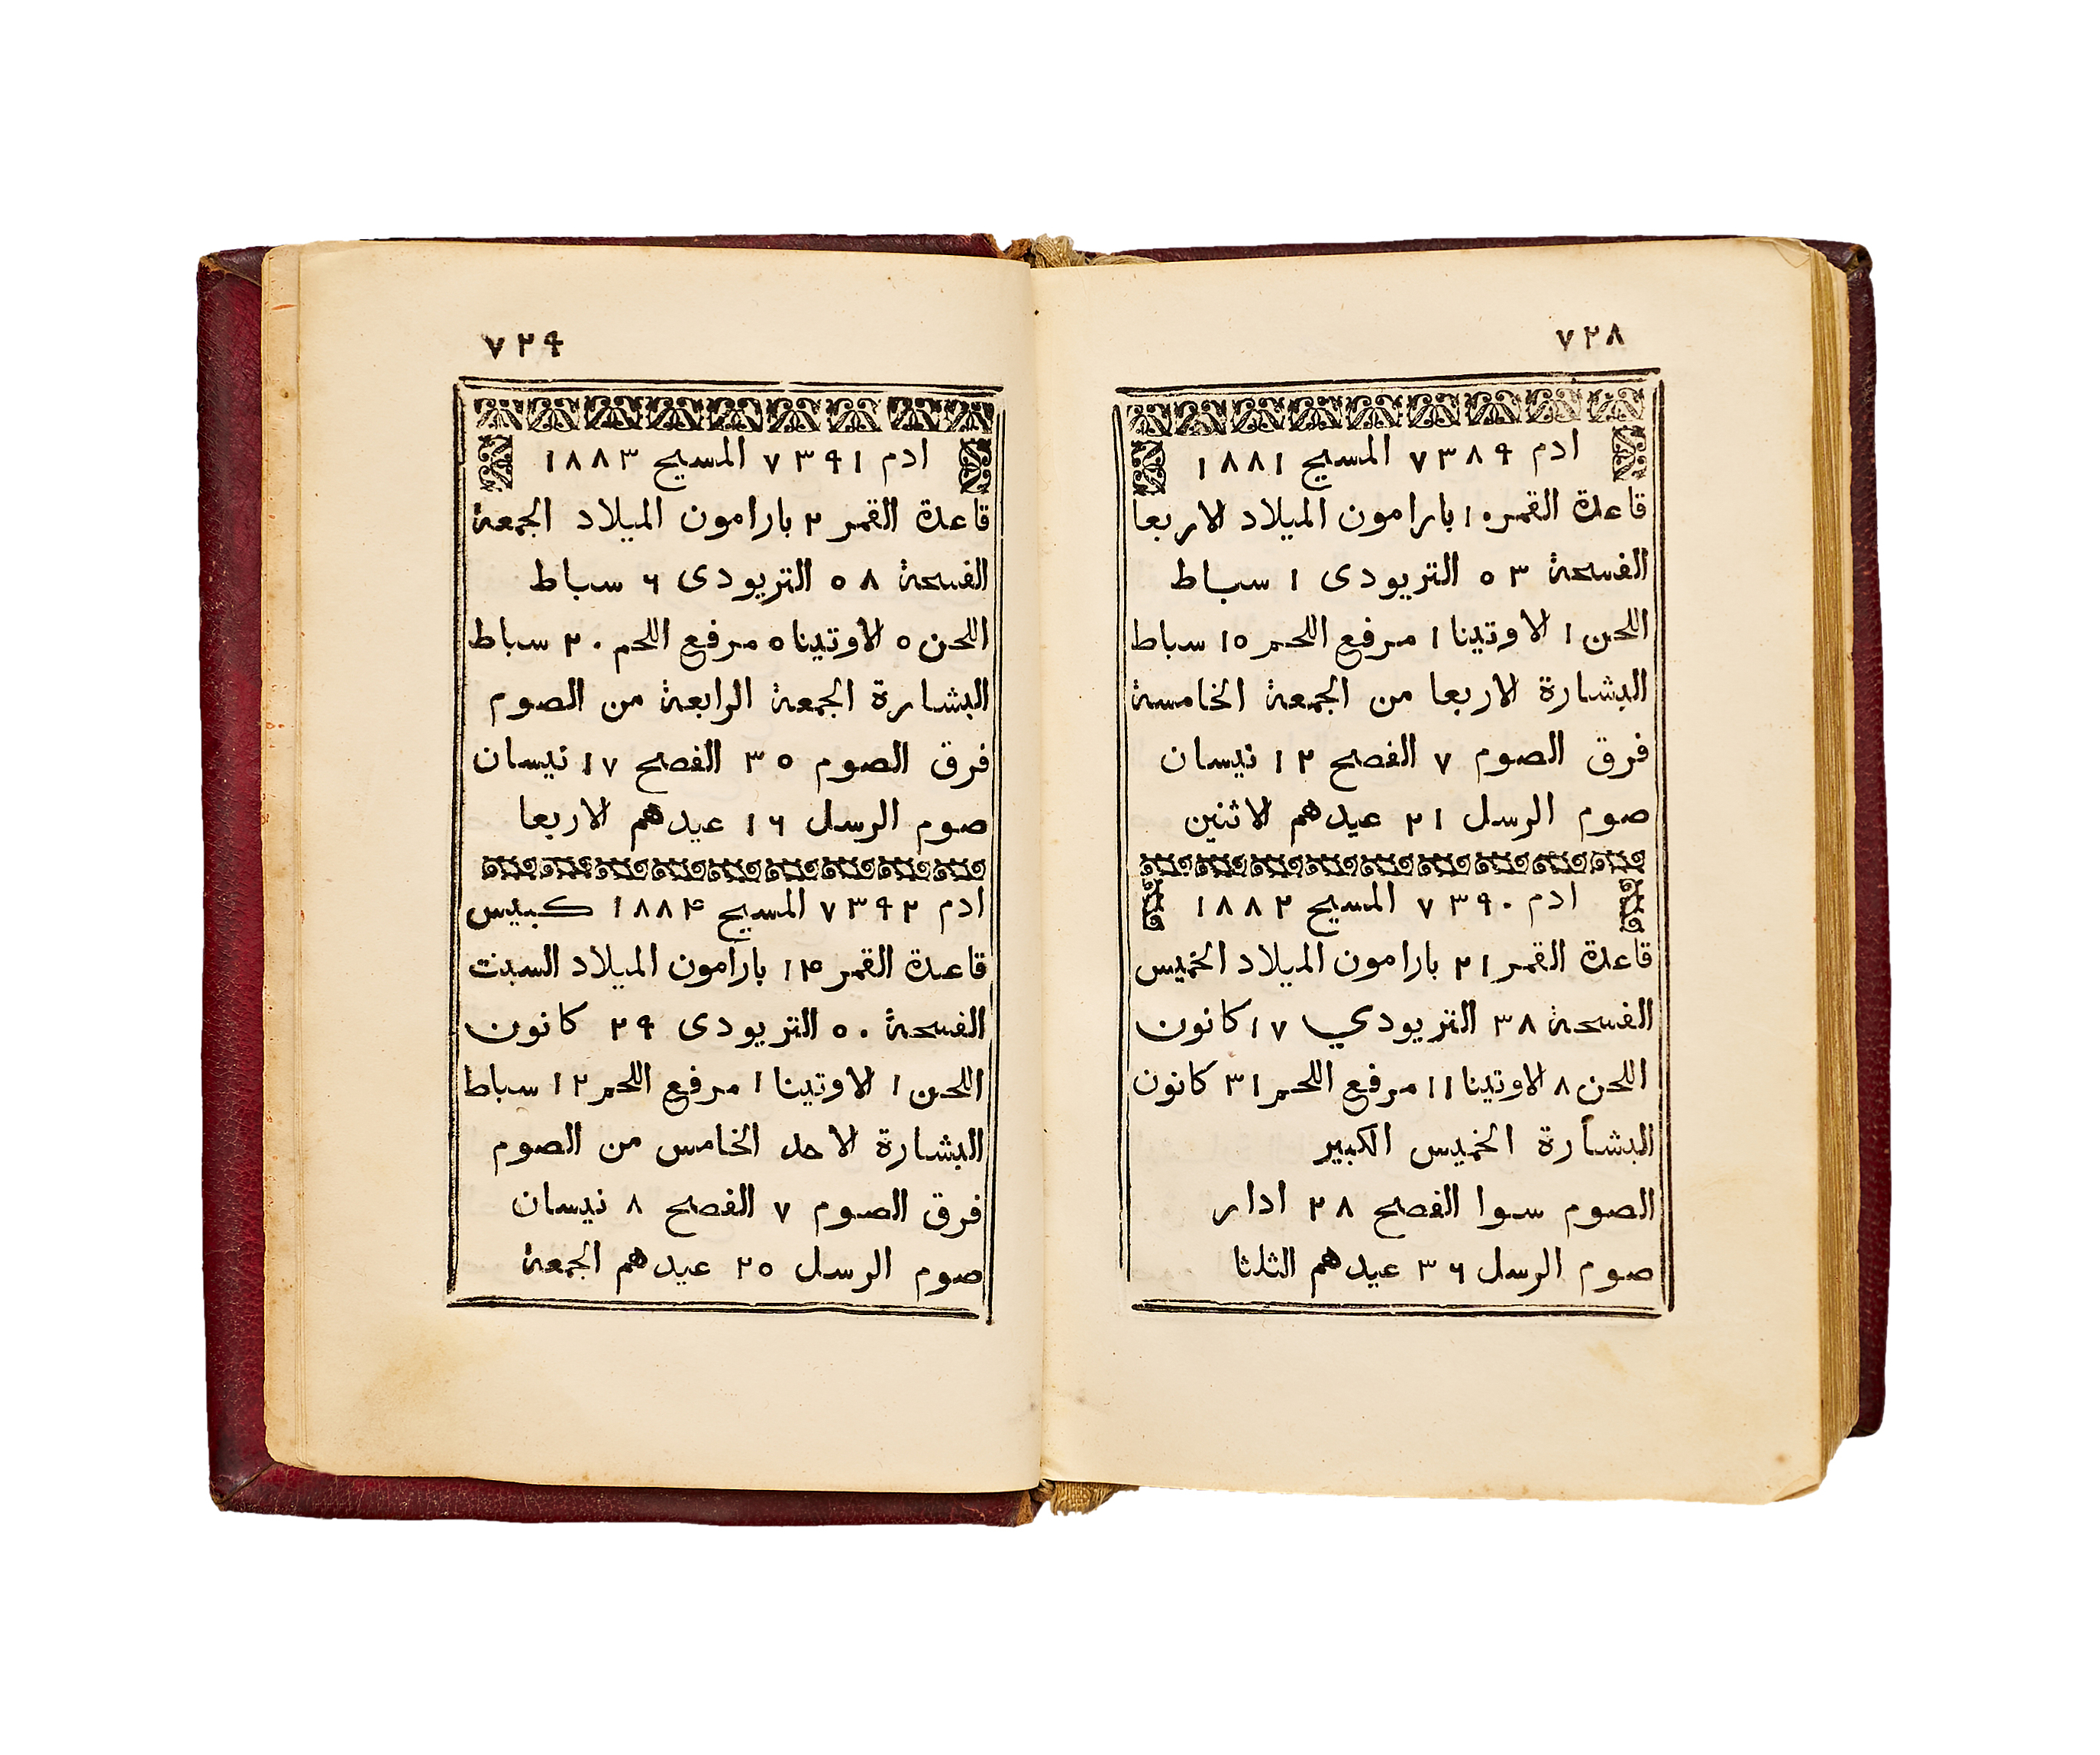 ٧٢٨
ادم ٧٣٨٩ المسيح ١٨٨١
قاعدة القمر ١٠ بارامون الميلاد الاربعا
الفسحة ٥٣ التريودى ١ سباط
اللحن ١ الاوتينا ١ مرفع اللحم ١٥ سباط
البشارة الاربعا من الجمعة الخامسة
فرق الصوم ٧ الفصح ١٢ نيسان
صوم الرسل ٢١ عيدهم الاثنين
ادم ٧٣٩٠ المسيح ١٨٨٢
قاعدة القمر ٢١ بارامون الميلاد الخميس
الفسحة ٣٨ التريودي ١٧ كانون
اللحن ٨ الاوتينا ١١ مرفع اللحم ٣١ كانون
البشارة الخميس الكبير
الصوم سوا الفصح ٢٨ ادار
صوم الرسل ٣٦ عيدهم الثلثا
٧٢٩
ادم ٧٣٩١ المسيح ١٨٨٣
قاعدة القمر ٢ بارامون الميلاد الجمعة
الفسحة ٥٨ التريودى ٦ سباط
اللحن ٥ الاوتينا ٥ مرفع اللحم ٢٠ سباط
البشارة الجمعة الرابعة من الصوم
فرق الصوم ٣٥ الفصح ١٧ نيسان
صوم الرسل ١٦ عيدهم الاربعا
ادم ٧٣٩٢ المسيح ١٨٨٤ كبيس
قاعدة القمر ١٣ بارامون الميلاد السبت
الفسحة ٥٠ التريودى ٢٩ كانون
اللحن ١ الاوتينا ١ مرفع اللحم ١٢ سباط
البشارة الاحد الخامس من الصوم
فرق الصوم ٧ الفصح ٨ نيسان
صوم الرسل ٢٥ عيدهم الجمعة